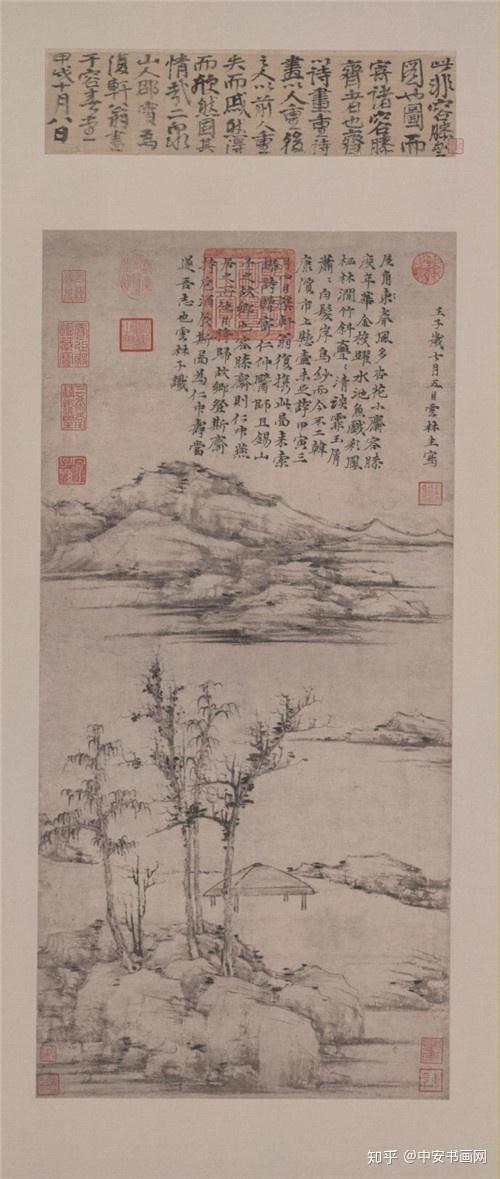 此非容膝齋
圖也圖而
寄諸容膝
齋者也齋
以詩畫重詩
畫以人重後
之人以前人重
失而戚然得
而欣然固其
情哉二泉
山人邵寶為
復軒翁書
于容春堂
甲戌十月八日
壬子歲七月五日雲林生寫
屋角春風多杏花小齋容膝
度年華金梭躍水池魚戲彩鳳
棲林澗竹斜亹〻清談霏玉屑
蕭〻白髮岸烏紗而今不二韓
康價市上懸壺未足誇甲寅三
月四日檗軒翁復攜此圖來索
謬詩贈寄仁仲醫師且錫山
予之故鄉也容膝齋則仁仲燕
居之所他日將歸故鄉登斯齋
持卮酒展斯圖為仁仲壽當
遂吾志也雲林子識
知乎 @中安书画网